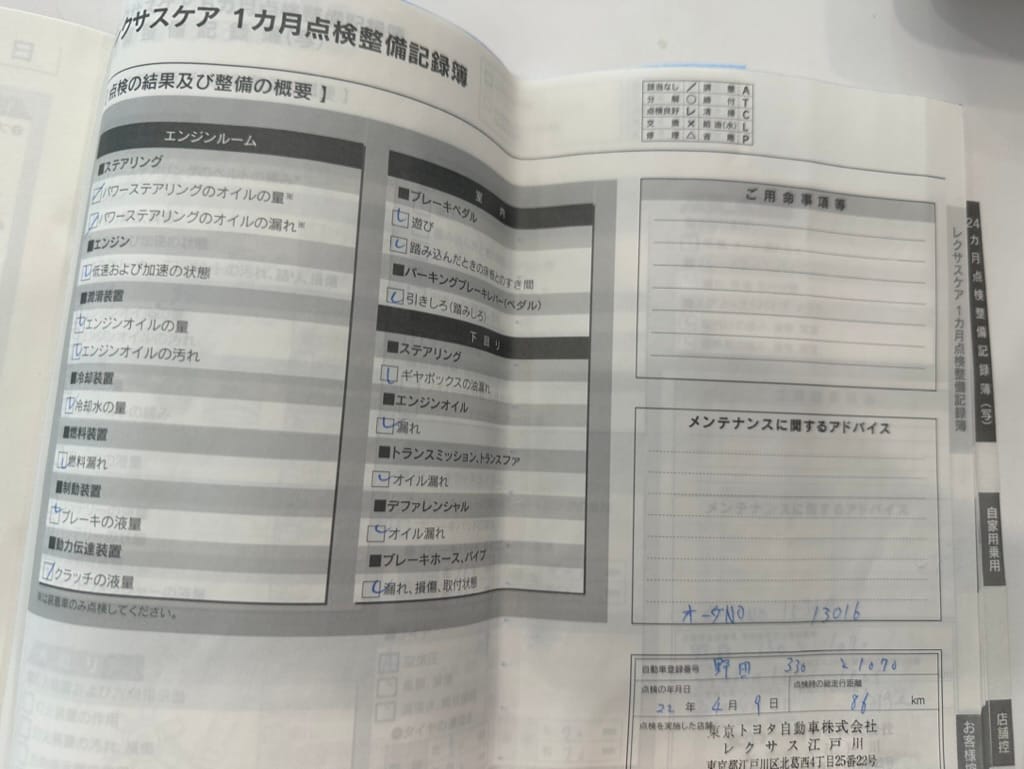 レクサスケア 1カ月点検整備記録簿
点検の結果及び整備の概要】
該当なし ／ 調整 A
分解 ○ 締付 T
点検良好 レ 清掃 C
交換 × 給油(水) L
修理 △ 省略 P
エンジンルーム
■ステアリング
パワーステアリングのオイルの量※
パワーステアリングのオイルの漏れ※
■エンジン
低速および加速の状態
■潤滑装置
エンジンオイルの量
エンジンオイルの汚れ
■冷却装置
冷却水の量
■燃料装置
燃料漏れ
■制動装置
ブレーキの液量
■動力伝達装置
クラッチの液量
※は装着車のみ点検してください。
室内
■ブレーキペダル
遊び
踏み込んだときの床板とのすき間
■パーキングブレーキレバー(ペダル)
引きしろ(踏みしろ)
下回り
■ステアリング
ギヤボックスの油漏れ
■エンジンオイル
漏れ
■トランスミッション、トランスファ
オイル漏れ
■デファレンシャル
オイル漏れ
■ブレーキホース、パイプ
漏れ、損傷、取付状態
ご用命事項等
メンテナンスに関するアドバイス
オーダNO 13016
自動車登録番号 野田 330
点検の年月日
22年 4月 9日
点検時の総走行距離
86 km
点検を実施した店舗
東京トヨタ自動車株式会社
レクサス江戸川
東京都江戸川区北葛西4丁目25番22号
24カ月点検整備記録簿(写)
レクサスケア 1カ月点検整備記録簿
自家用乗用
店舗控
お客様控